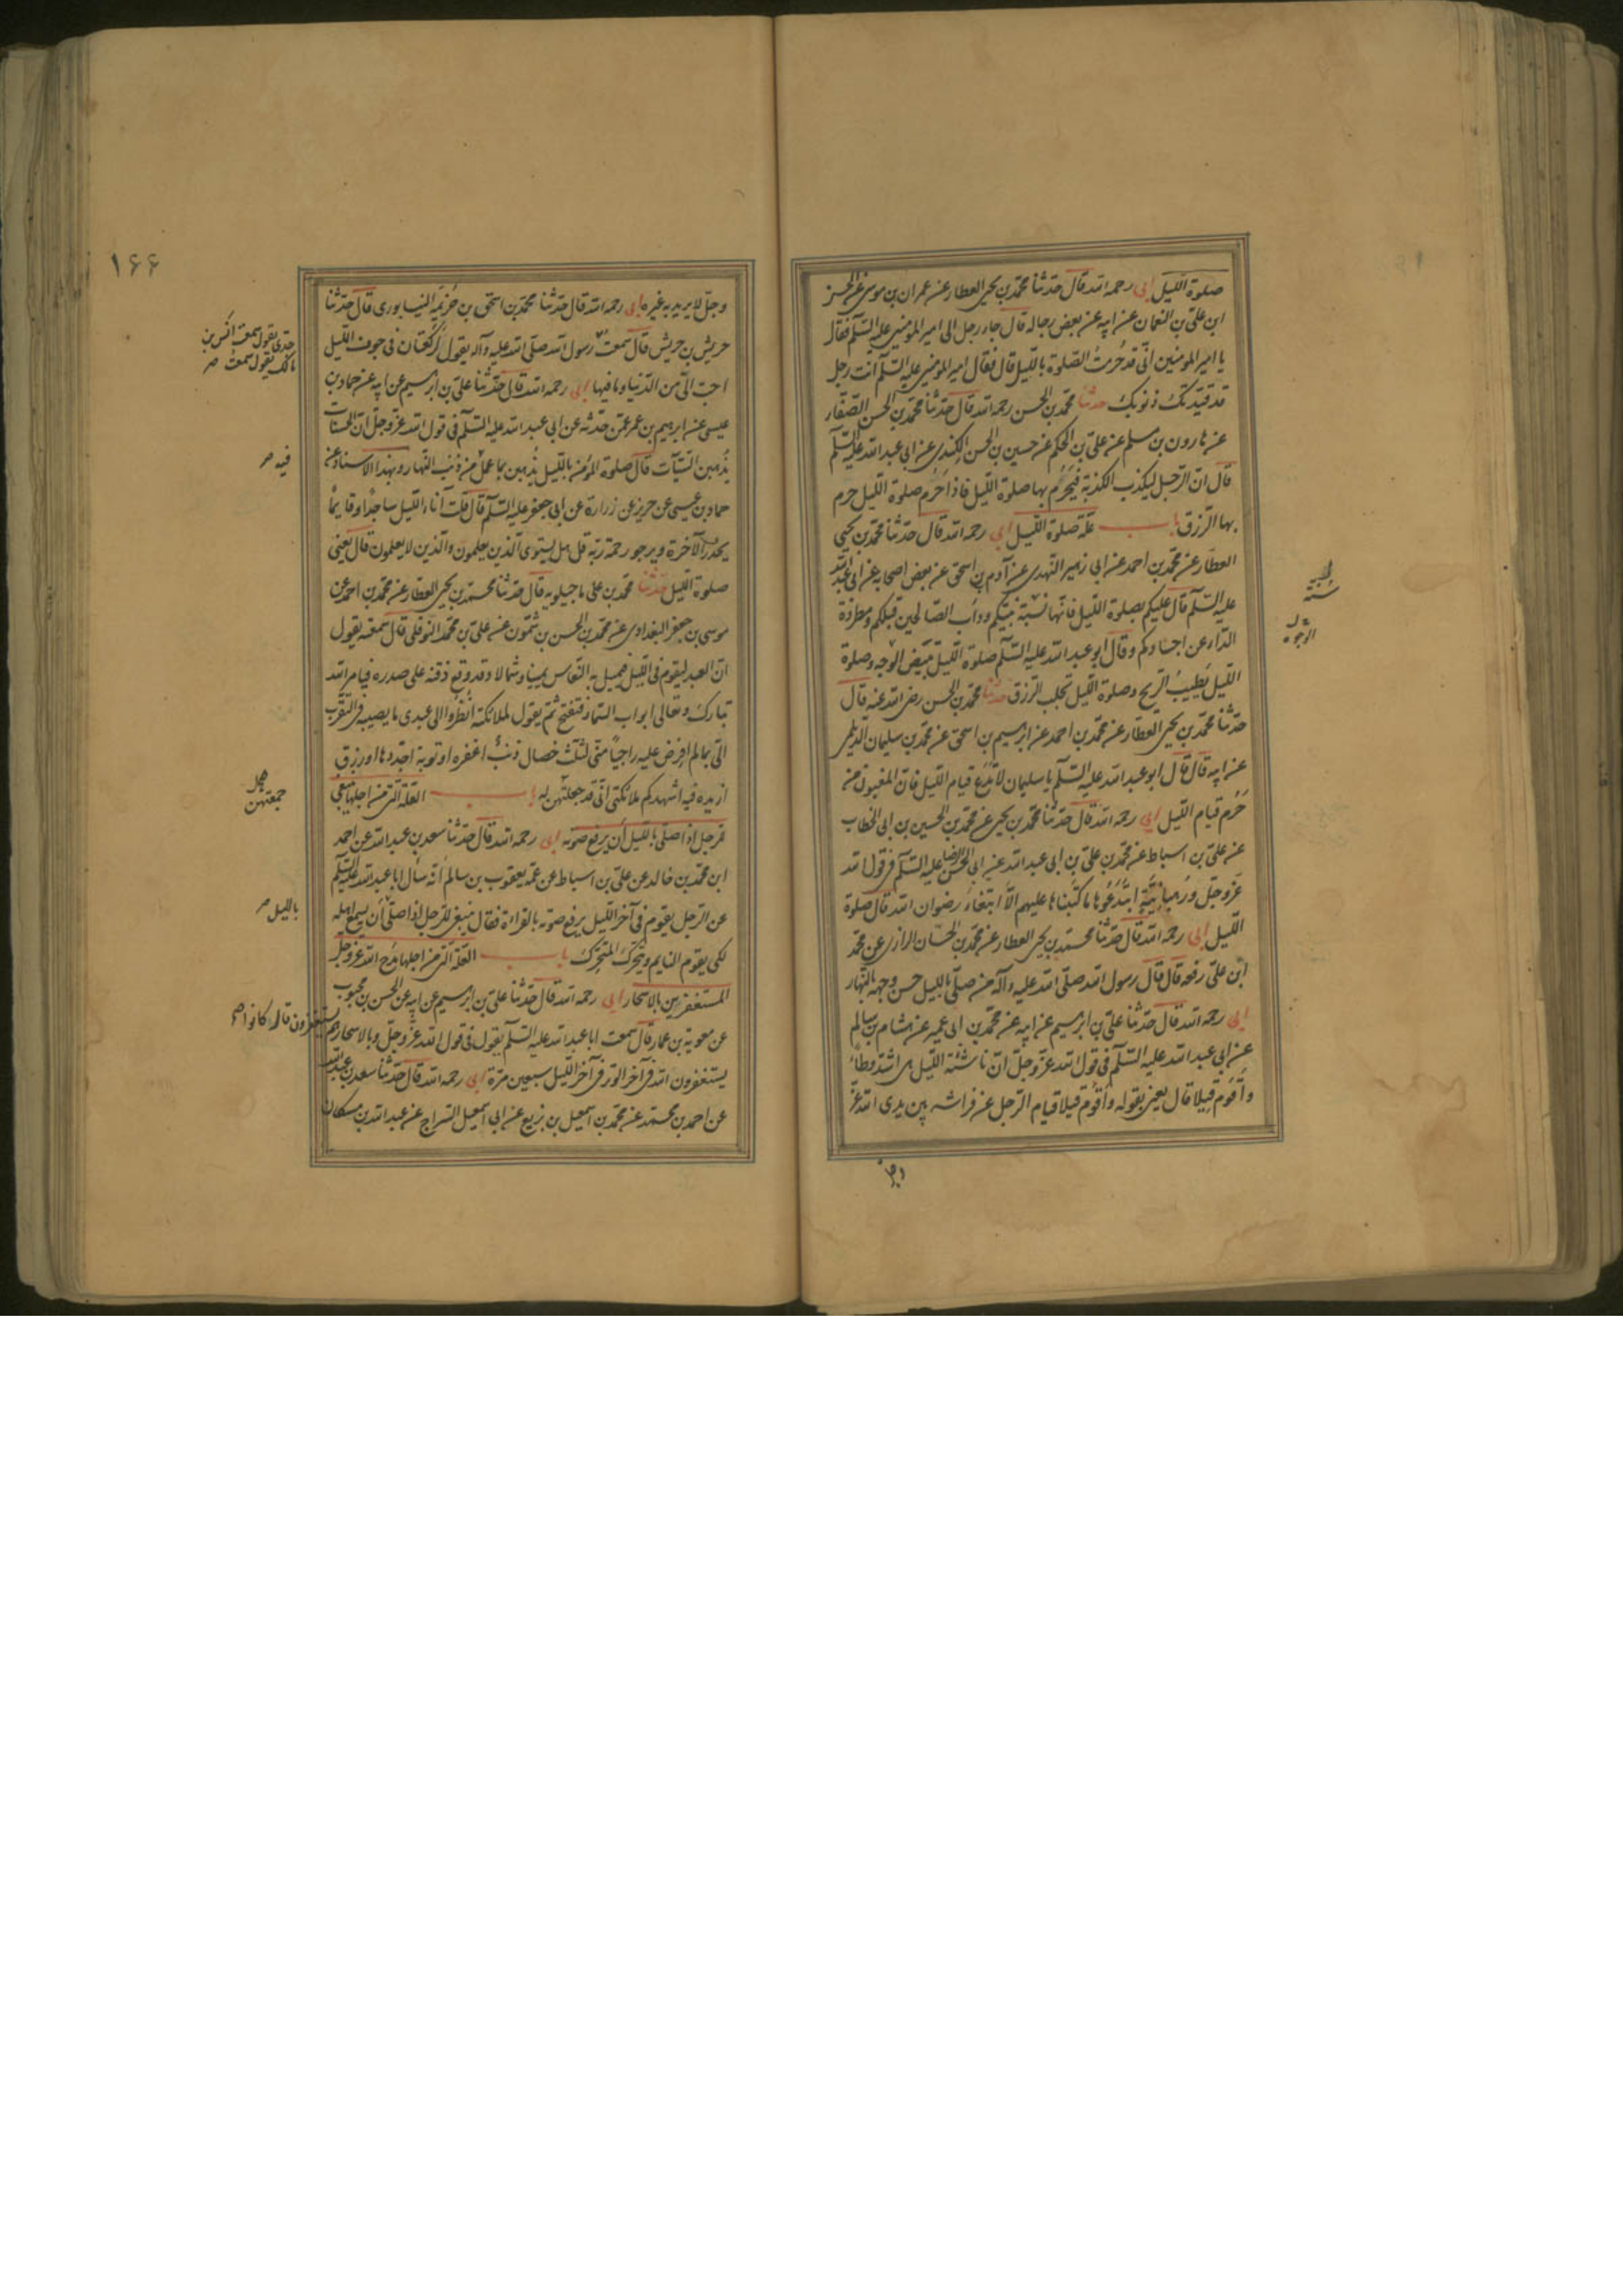 صلوة اللیل ابی رحمه الله قال حدثنا محمد بن یحیی العطار عن عمران بن موسی عن الحسن
ابن علی بن النعمان عن ابیه عن بعض رجاله قال جاء رجل الی امیر المومنین علیه السلم فقال
یا امیر المومنین انی قد حُرمتُ الصلوة باللیل قال فقال امیر المومنین علیه السلم انت رجل
قد قیدتک ذنوبک حدثنا محمد بن الحسن رحمه الله قال حدثنا محمد بن الحسن الصفار
عن هارون بن مسلم عن علی بن الحکم عن حسین بن الحسن الکندی عن ابی عبد الله علیه السلم
قال ان الرجل لیکذب الکذبة فیُحرَم بها صلوة اللیل فاذا حُرم صلوة اللیل حرم
بها الرزق باب علة صلوة اللیل ابی رحمه الله قال حدثنا محمد بن یحیی
العطار عن محمد بن احمد عن ابی زهیر النهدی عن آدم بن اسحق عن بعض اصحابه عن ابی عبد الله
علیه السلم قال علیکم بصلوة اللیل فانها سُنة نبیکم وداب الصالحین قبلکم ومطردة
الداء عن اجسادکم وقال ابو عبد الله علیه السلم صلوة اللیل تبیض الوجه وصلوة
اللیل تطیب الریح وصلوة اللیل تجلب الرزق حدثنا محمد بن الحسن رضی الله عنه قال
حدثنا محمد بن یحیی العطار عن محمد بن احمد عن ابرهیم بن اسحق عن محمد بن سلیمان الدیلمی
عن ابیه قال قال ابو عبد الله علیه السلم یا سلیمان لا تدَع قیام اللیل فان المغبون من
حُرم قیام اللیل ابی رحمه الله قال حدثنا محمد بن یحیی عن محمد بن الحسین بن ابی الخطاب
عن علی بن اسباط عن محمد بن علی بن ابی عبد الله عن ابی الحسن الرضا علیه السلم فی قول الله
عَزّ وجلّ ورهبانیّة ابتدعُوها ما کتبناها علیهم الّا ابتغاءَ رضوان الله قال صلوة
اللیل ابی رحمه الله قال حدثنا محمد بن یحیی العطار عن محمد بن الحسان الرازی عن محمد
ابن علی رفعه قال قال رسول الله صلی الله علیه وآله من صلی باللیل حسن وجهه بالنهار
ابی رحمه الله قال حدثنا علی بن ابرهیم عن ابیه عن محمد بن ابی عمیر عن هشام بن سالم
عن ابی عبد الله علیه السلم فی قول الله عزّ وجلّ انّ ناشئة اللیل هی اشد وطأً
واَقومُ قیلا قال یعنی بقوله واَقومُ قیلا قیام الرجل عن فراشه بین یدی الله عزّ
الوجوه
۱۶۶
وجلّ لا یرید به غیره ابی رحمه الله قال حدثنا محمد بن اسحق بن خُزیمَه النیسابوری قال حدثنا
حریش بن حریش قال سمعتُ رسول الله صلی الله علیه وآله یقول الرکعتان فی جوف اللیل
احب الیّ من الدنیا وما فیها ابی رحمه الله قال حدثنا علی بن ابرهیم عن ابیه عن حماد بن
عیسی عن ابرهیم بن عمر عمن حدثه عن ابی عبد الله علیه السلم فی قول الله عزّ وجلّ ان الحسنات
یُذهبن السیّات قال صلوة المؤمن باللیل یُذهبن بما عمل من ذنب النهار وبهذا الاسناد عن
حماد بن عیسی عن حریز عن زرارة عن ابی جعفر علیه السلم قال قلت آناء اللیل ساجدًا وقایمًا
یحذرُ الآخرة ویرجو رحمة ربّه قل هل یستوی الذین یعلمون والذین لا یعلمون قال یعنی
صلوة اللیل حدثنا محمد بن علی ماجیلویه قال حدثنا محمد بن یحیی العطار عن محمد بن احمد عن
موسی بن جعفر البغدادی عن محمد بن الحسن بن شمّون عن علی بن محمد النوفلی قال سمعته یقول
ان العبد لیقوم فی اللیل فیمیل به النعاس یمینا وشمالا وقد وقع ذقنه علی صدره فیامر الله
تبارک وتعالی ابواب السماء فتفتح ثم یقول لملائکته انظروا الی عبدی ما یصیبه فی التقرب
الیّ بما لم افرض علیه راجیًا منّی لثلث خصال ذنبٌ اغفره او توبة اجدّدها او رزق
ازیده فیه اشهدکم ملائکتی انّی قد جعلتهنّ له باب العلّة التی من اجلها ینبغی
للرجل اذا صلّی باللیل ان یرفع صوته ابی رحمه الله قال حدثنا سعد بن عبد الله عن احمد
ابن محمد بن خالد عن علی بن اسباط عن عمّه یعقوب بن سالم انّه سأل ابا عبد الله علیه السلم
عن الرجل یقوم فی آخر اللیل یرفع صوته بالقراءة فقال ینبغی للرجل اذا صلّی ان یسمع اهله
لکی یقوم النایم ویتحرک المتحرک باب العلّة التی من اجلها مدح الله عزّ وجلّ
المستغفرین بالاسحار ابی رحمه الله قال حدثنا علی بن ابرهیم عن ابیه عن الحسن بن محبوب
عن معویة بن عمار قال سمعت ابا عبد الله علیه السلم یقول فی قول الله عزّ وجلّ وبالاسحار هم
یستغفرون الله فی آخر الوتر فی آخر اللیل سبعین مرّة ابی رحمه الله قال حدثنا سعد بن عبد الله
عن احمد بن محمد عن محمد بن اسمعیل بن بزیع عن ابی اسمعیل السراج عن عبد الله بن مسکان
جدی یقول سمعت انس بن
مالک یقول سمعت صح
فیه صح
جمعتهن
باللیل صح
یستغفرون قال کانوا صح